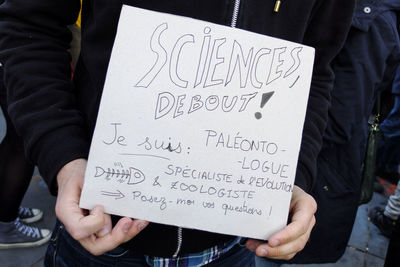 SCIENCES,
DEBOUT !
Je suis : PALÉONTO-
-LOGUE
SPÉCIALISTE de l'ÉVOLUTION
& ZOOLOGISTE
⇒ Posez-moi vos questions !